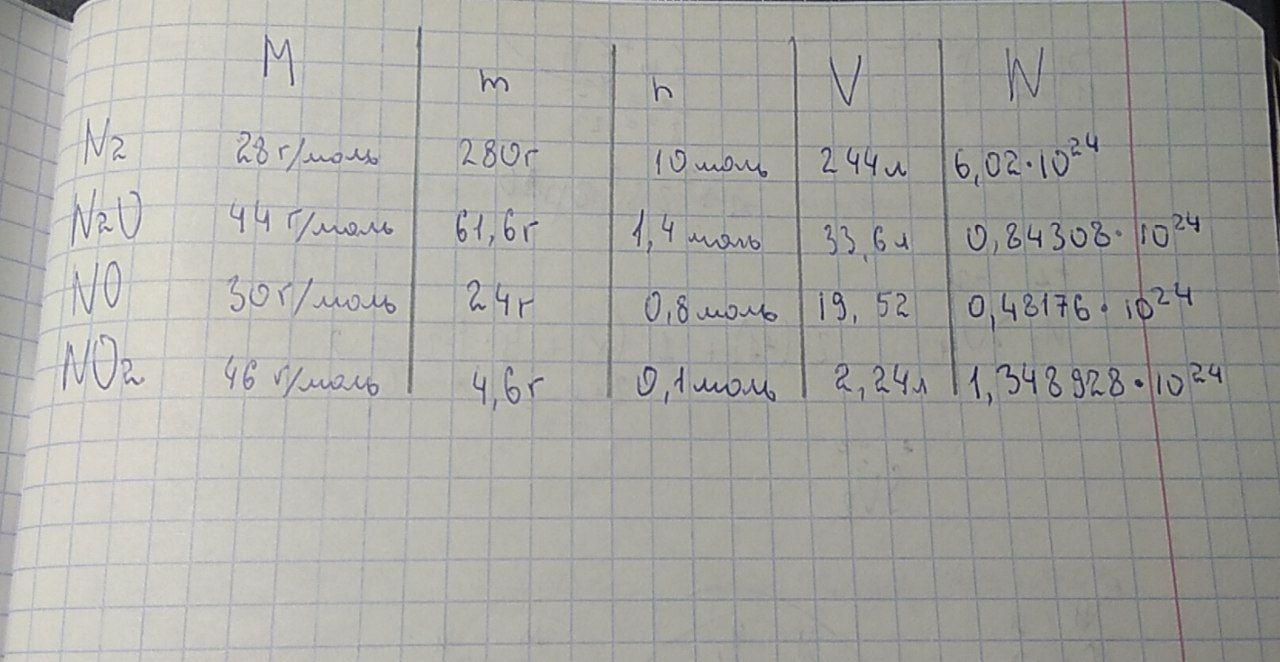 M m n V N
N₂ 28 г/моль 280г 10 моль 244л 6,02·10²⁴
N₂O 44 г/моль 61,6г 1,4 моль 33,6л 0,84308·10²⁴
NO 30 г/моль 24г 0,8 моль 19,52 0,48176·10²⁴
NO₂ 46 г/моль 4,6г 0,1 моль 2,24л 1,348928·10²⁴